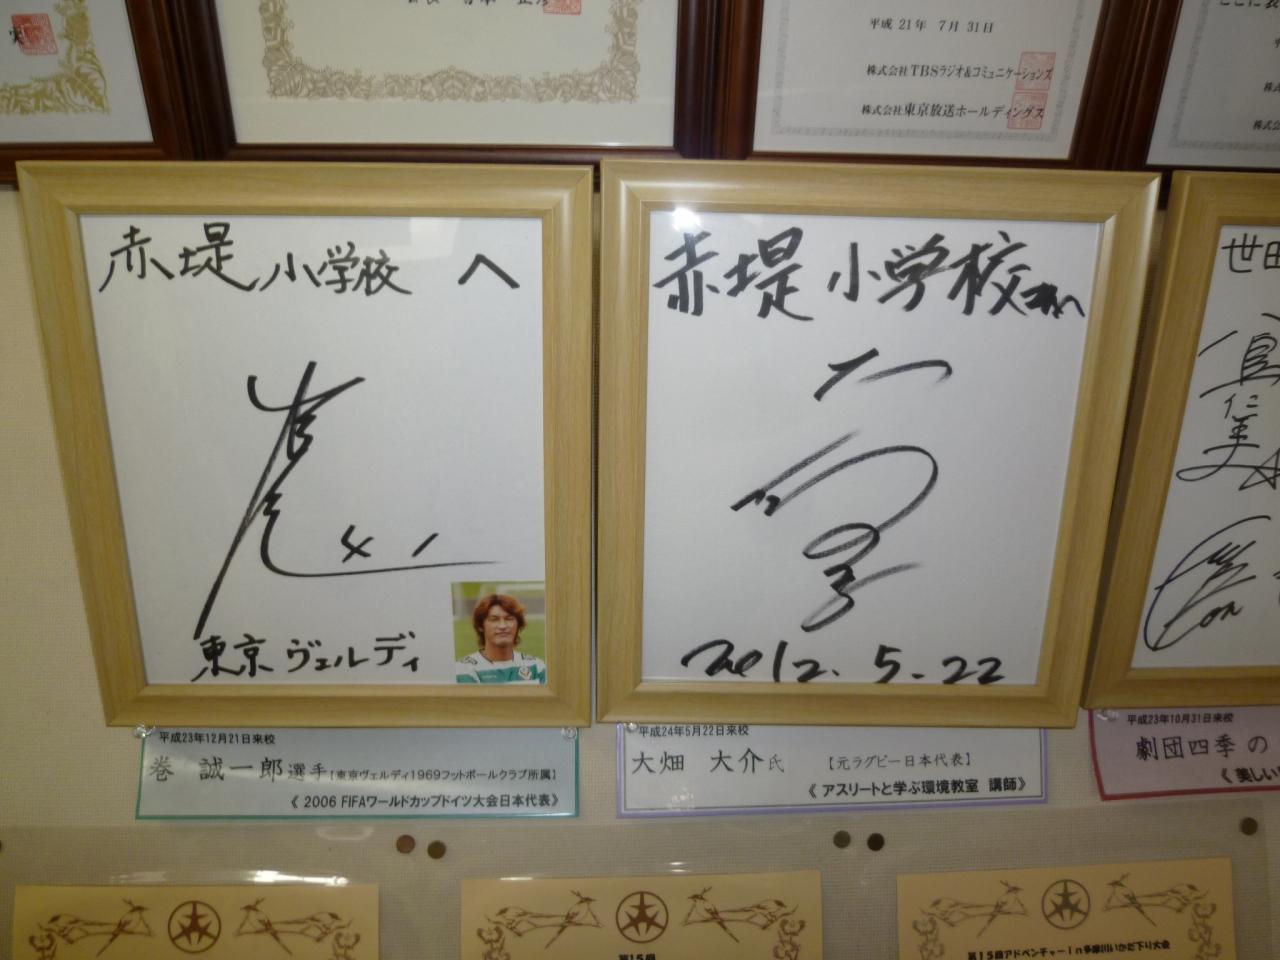 平成21年 7月 31日
株式会社TBSラジオ&コミュニケーションズ
株式会社東京放送ホールディングス
赤堤小学校 へ
東京ヴェルディ
赤堤小学校さんへ
2012.5.22
世田
平成23年12月21日来校
巻 誠一郎選手【東京ヴェルディ1969フットボールクラブ所属】
《 2006 FIFAワールドカップドイツ大会日本代表》
平成24年5月22日来校
大畑 大介氏 【元ラグビー日本代表】
《 アスリートと学ぶ環境教室 講師》
平成23年10月31日来校
劇団四季 の
《 美しい
第15回
第15回アドベンチャーin多摩川いかだ下り大会